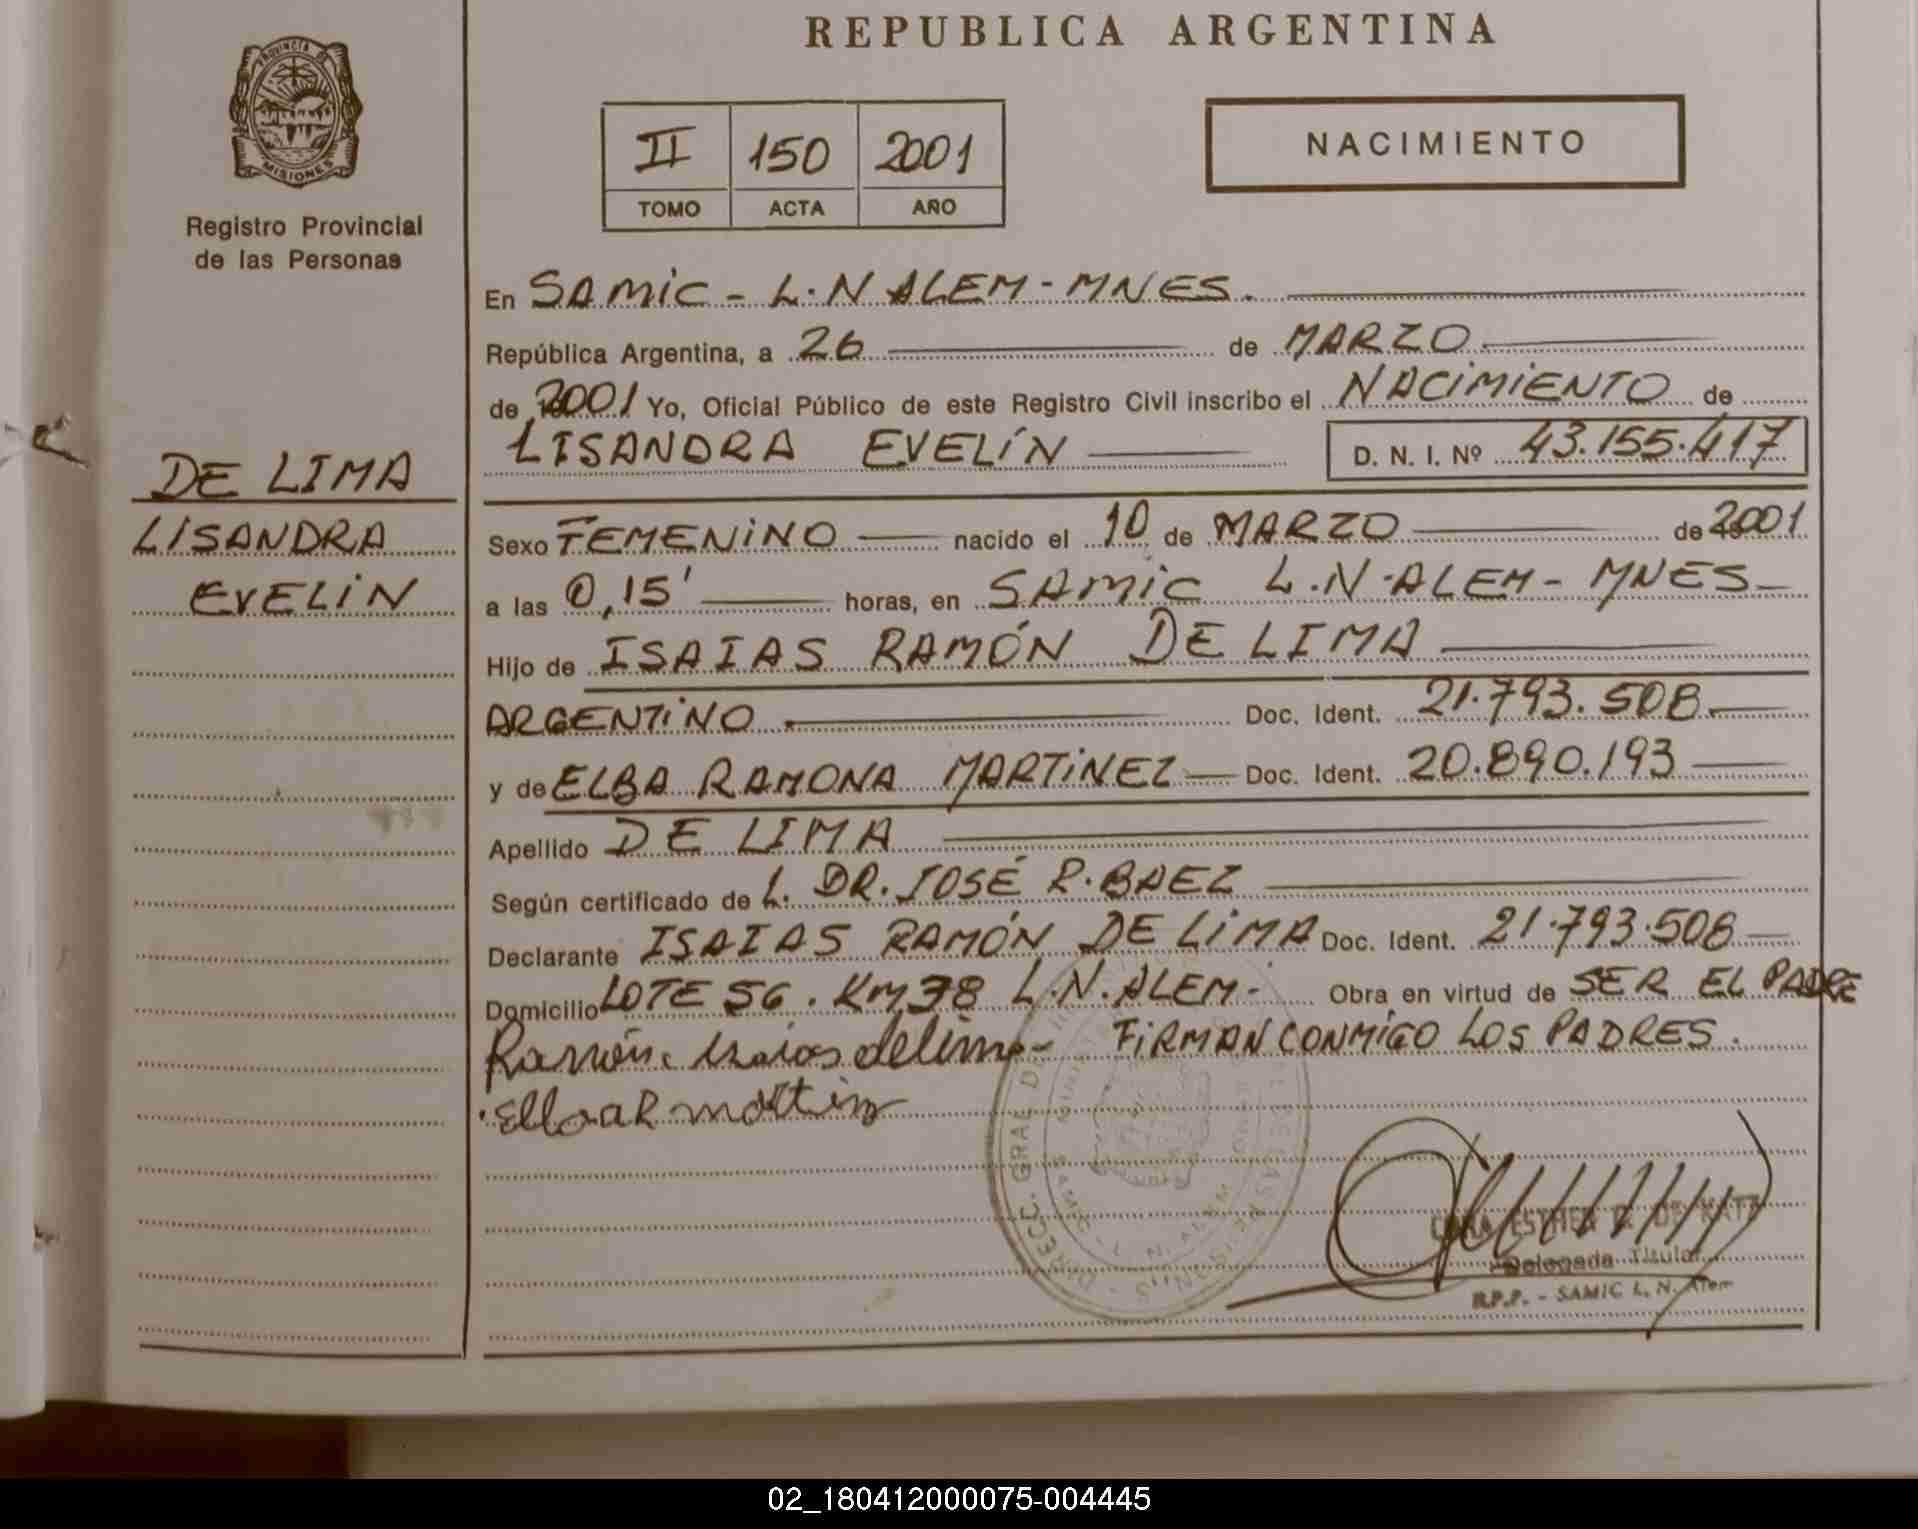 REPUBLICA ARGENTINA
PROVINCIA DE
MISIONES
Registro Provincial
de las Personas
II 150 2001
TOMO ACTA AÑO
NACIMIENTO
En SAMIC - L.N ALEM - MNES.
República Argentina, a 26 de MARZO
de 2001 Yo, Oficial Público de este Registro Civil inscribo el NACIMIENTO de
LISANDRA EVELÍN D. N. I. Nº 43.155.417
DE LIMA
LISANDRA
EVELIN
Sexo FEMENINO nacido el 10 de MARZO de 2001
a las 0,15' horas, en SAMIC L.N.ALEM - MNES
Hijo de ISAIAS RAMÓN DE LIMA
ARGENTINO. Doc. Ident. 21.793.508
y de ELBA RAMONA MARTINEZ Doc. Ident. 20.890.193
Apellido DE LIMA
Según certificado de L. DR. JOSÉ R. BAEZ
Declarante ISAIAS RAMÓN DE LIMA Doc. Ident. 21.793.508
Domicilio LOTE 56. KM 38 L.N.ALEM. Obra en virtud de SER EL PADRE
Ramón Isaias delima FIRMAN CONMIGO LOS PADRES.
DIRECC. GRAL DE
SAMIC - L. N. ALEM
DE KATZ
Delegada Titular
R.P.P. - SAMIC L. N. Alem
02_180412000075-004445